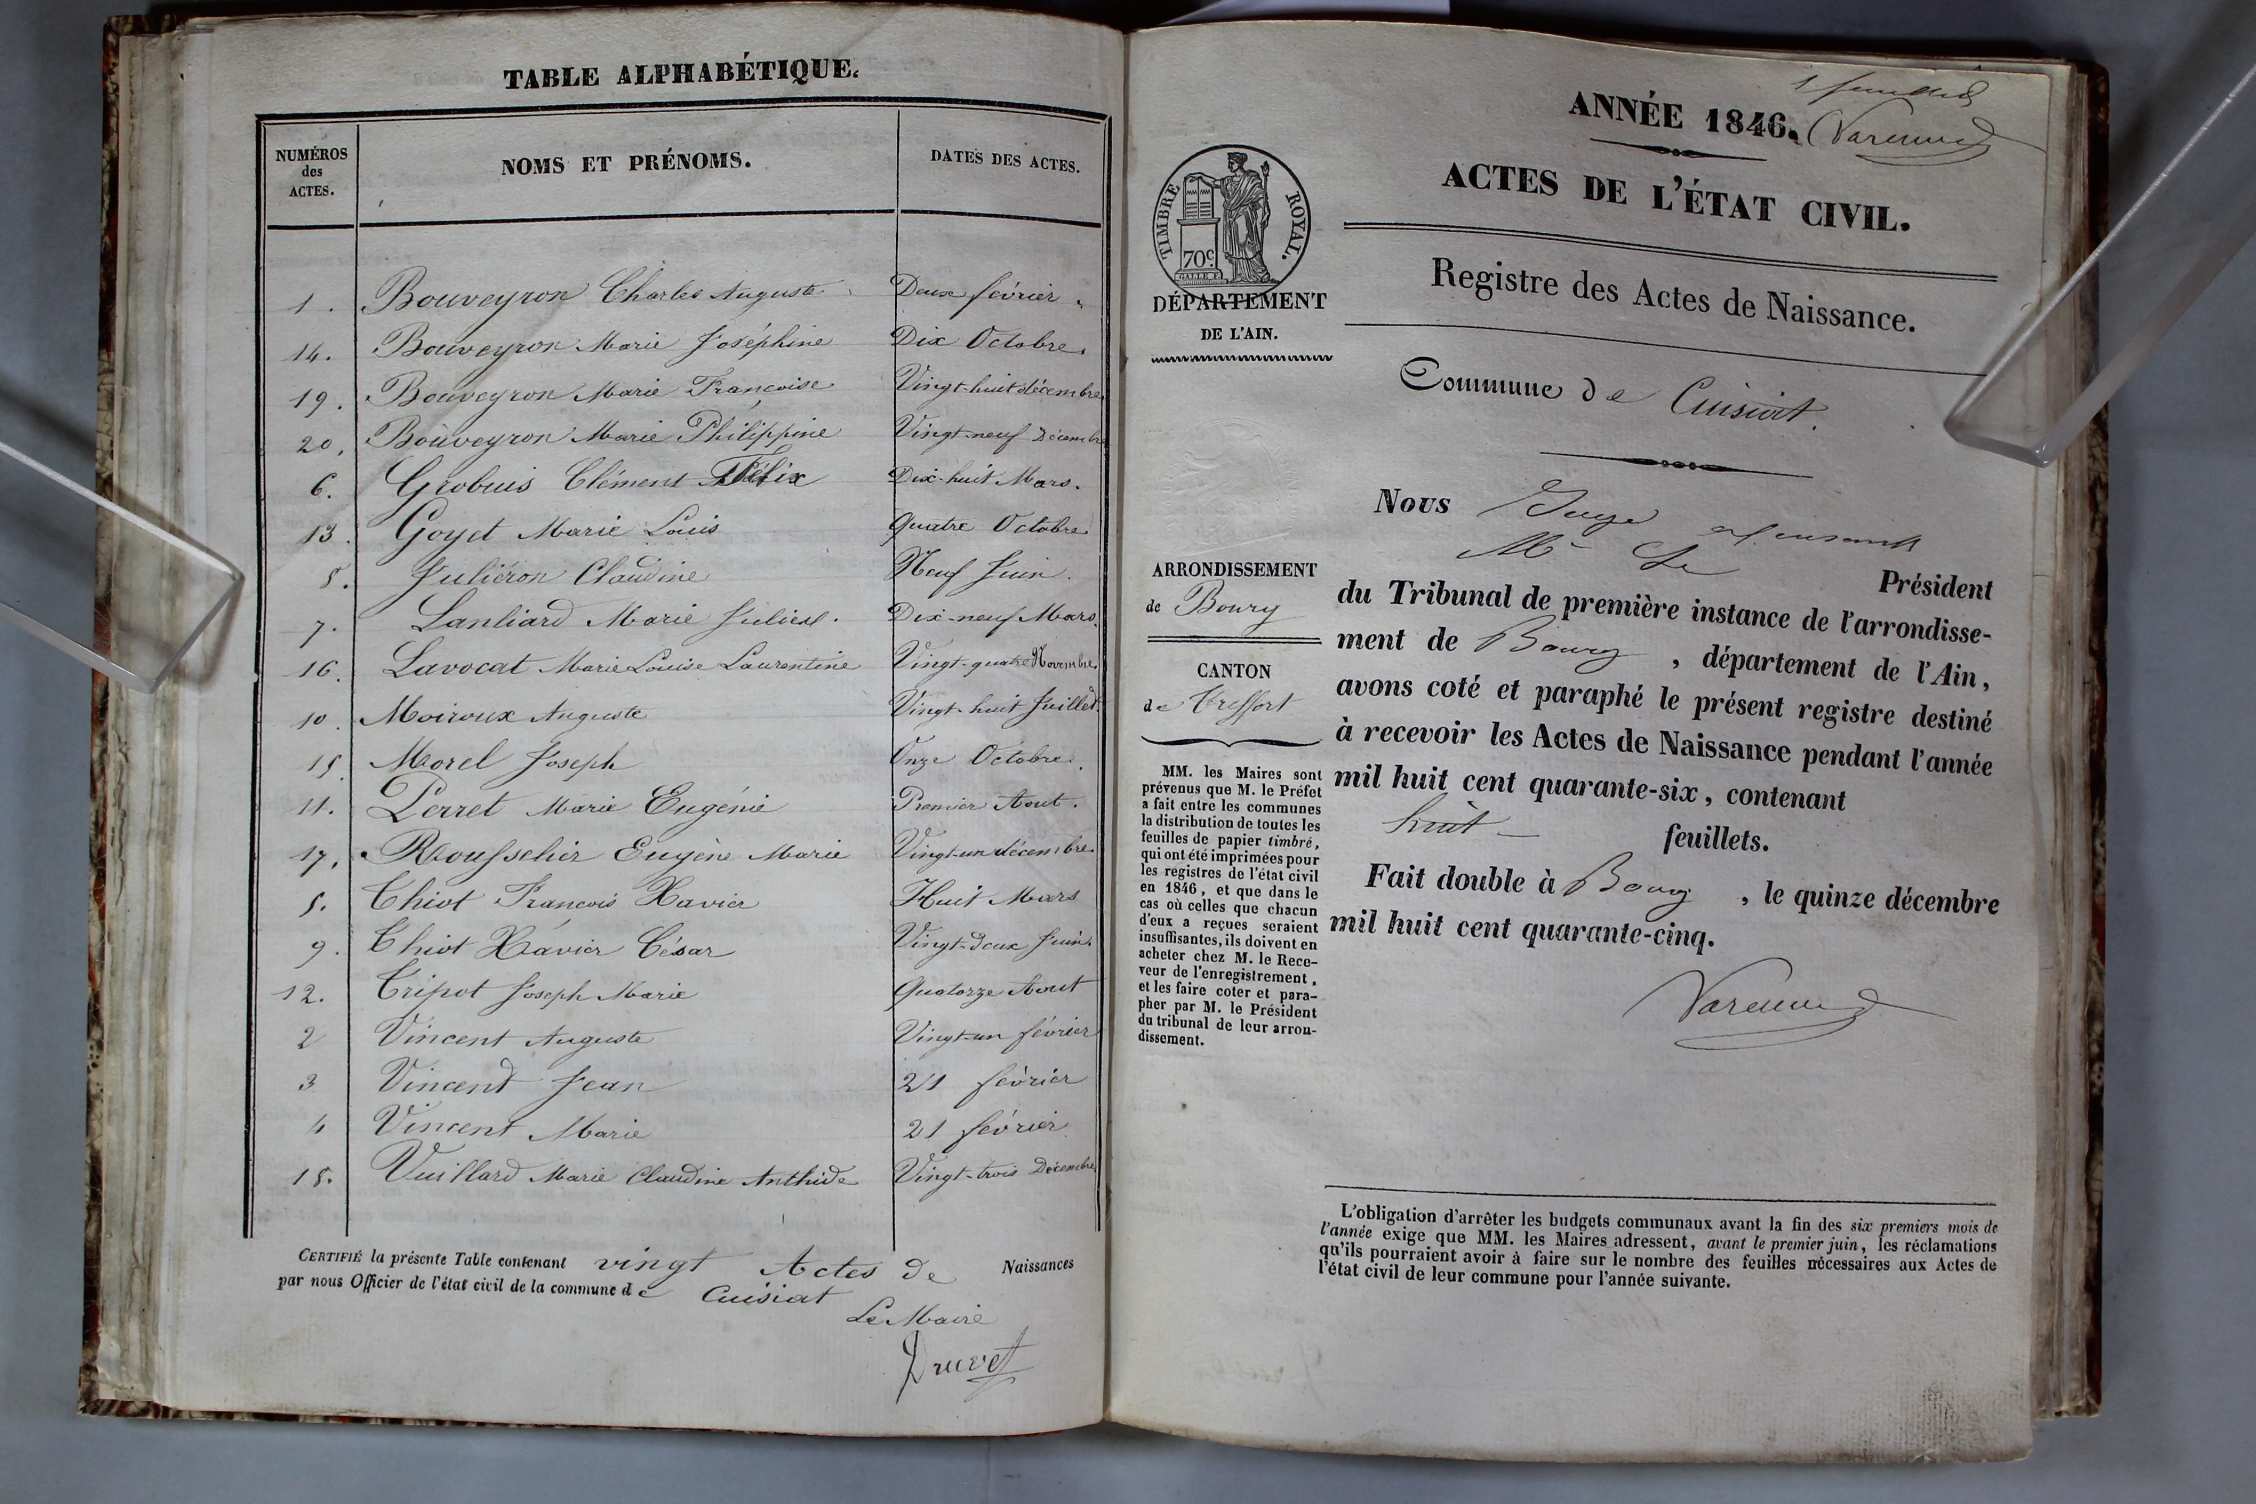 TABLE ALPHABÉTIQUE.
NUMÉROS des ACTES.
NOMS ET PRÉNOMS.
DATES DES ACTES.
1. Bouveyron Charles Auguste Deux février.
14. Bouveyron Marie Joséphine Dix Octobre.
19. Bouveyron Marie Francoise Vingt-huit décembre
20. Bouveyron Marie Philippine Vingt-neuf Décembre
6. Grobuis Clément Félix Dix-huit Mars.
13. Goyet Marie Louis Quatre Octobre
8. Juliéron Claudine Neuf Juin.
7. Lanliard Marie Dix-neuf Mars.
16. Lavocat Marie Louise Laurentine Vingt-quatre Novembre
10. Moiroux Auguste Vingt-huit Juillet.
15. Morel Joseph Onze Octobre.
11. Perret Marie Eugénie Premier Aout.
17. Rousselier Eugène Marie Vingt-un décembre
5. Chiot Francois Xavier Huit Mars
9. Chiot Xavier César Vingt-deux Juin.
12. Tripot Joseph Marie Quatorze Aout
2 Vincent Auguste Vingt-un février
3 Vincent Jean 21 février
4 Vincent Marie 21 février
18. Vuillard Marie Claudine Anthide Vingt-trois Décembre
CERTIFIÉ la présente Table contenant vingt Actes de Naissances
par nous Officier de l'état civil de la commune de Cuisiat
Le Maire
Druet
ANNÉE 1846.
Varenne
ACTES DE L'ÉTAT CIVIL.
TIMBRE ROYAL.
70c.
DÉPARTEMENT
DE L'AIN.
Registre des Actes de Naissance.
Commune de Cuisiat.
Nous Juge
Mr Le Président
du Tribunal de première instance de l'arrondisse-
ment de Bourg, département de l'Ain,
avons coté et paraphé le présent registre destiné
à recevoir les Actes de Naissance pendant l'année
mil huit cent quarante-six, contenant
huit feuillets.
Fait double à Bourg, le quinze décembre
mil huit cent quarante-cinq.
Varenne
ARRONDISSEMENT
de Bourg
CANTON
de Treffort
MM. les Maires sont
prévenus que M. le Préfet
a fait entre les communes
la distribution de toutes les
feuilles de papier timbré,
qui ont été imprimées pour
les registres de l'état civil
en 1846, et que dans le
cas où celles que chacun
d'eux a reçues seraient
insuffisantes, ils doivent en
acheter chez M. le Rece-
veur de l'enregistrement,
et les faire coter et para-
pher par M. le Président
du tribunal de leur arron-
dissement.
L'obligation d'arrêter les budgets communaux avant la fin des six premiers mois de
l'année exige que MM. les Maires adressent, avant le premier juin, les réclamations
qu'ils pourraient avoir à faire sur le nombre des feuilles nécessaires aux Actes de
l'état civil de leur commune pour l'année suivante.